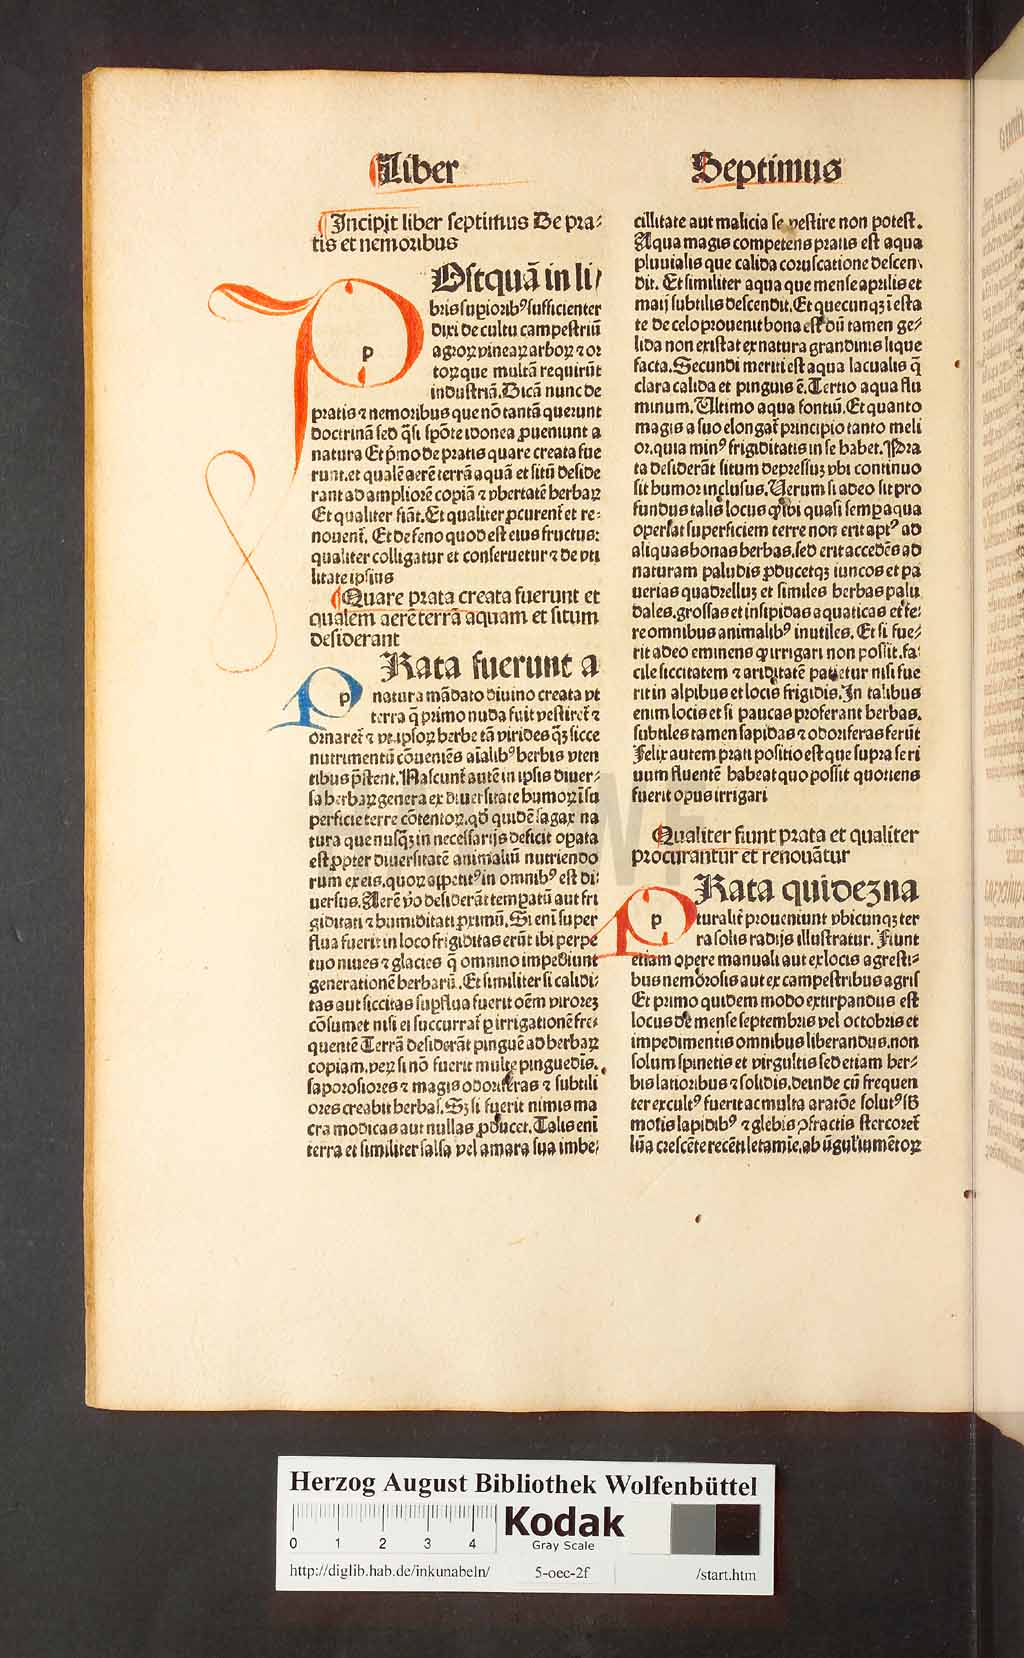 Liber Septimus
Incipit liber septimus De pra⸗
tis et nemoribus
POstquã in li⸗
bris supiorib⁹ sufficienter
dixi de cultu campestriũ
agroꝝ vineaꝝ arboꝝ ⁊ or
toꝝ que multã requirũt
industriã. Dicã nunc de
pratis ⁊ nemoribus que nõ tantã querunt
doctrinã sed q̃si spõte idonea ꝓueniunt a
natura Et p̃mo de pratis quare creata fue
runt. et qualẽ aerẽ terrã aquã et sitũ deside
rant ad ampliorẽ copiã ⁊ vbertatẽ herbaꝝ
Et qualiter fiãt. Et qualiter ꝓcurent̃ et re⸗
nouent̃. Et de feno quod est eius fructus:
qualiter colligatur et conseruetur ⁊ de vti
litate ipsius
Quare prata creata fuerunt et
qualem aerẽ terrã aquam et situm
desiderant
pRata fuerunt a
natura mãdato diuino creata vt
terra q̃ primo nuda fuit vestiret̃ ⁊
ornaret̃ ⁊ vt ipsoꝝ herbe tã virides q̃ꝫ sicce
nutrimentũ cõueniẽs aĩalib⁹ herbis vten
tibus p̃stent. Nascunt̃ autẽ in ipsis diuer⸗
sa herbaꝝ genera ex diuersitate humoꝝ ĩ su
perficie terre cõtentoꝝ. qð quidẽ sagax na
tura que nusq̃ꝫ in necessarijs deficit optata
est ꝓpter diuersitatẽ animaliũ nutriendo
rum ex eis. quoꝝ appetit⁹ in omnib⁹ est di⸗
uersus. Aerẽ ṽo desiderãt tempatũ aut fri
giditati ⁊ humiditati ꝓximũ. Si eni᷒ super
flua fuerit in loco frigiditas erũt ibi perpe
tuo niues ⁊ glacies q̃ omnino impediunt
generationẽ herbarũ. Et similiter si calidi⸗
tas aut siccitas supflua fuerit oẽm virorẽ
cõsumet nisi ei succurrat̃ ꝑ irrigationẽ fre⸗
quentẽ Terrã desiderãt pinguẽ ad herbaꝝ
copiam. veꝝ si nõ fuerit multe pinguedĩs.
saporosiores ⁊ magis odoriferas ⁊ subtili
ores creabit herbas. Sꝫ si fuerit nimis ma
cra modicas aut nullas ꝓducet. Talis eni᷒
terra et similiter salsa vel amara sua imbe⸗
cillitate aut malicia se vestire non potest.
Aqua magis competens pratis est aqua
pluuialis que calida coruscatione descen⸗
dit. Et similiter aqua que mense aprilis et
maij subtilis descendit. Et quecunqꝫ ĩ esta
te de celo prouenit bona est dũ tamen ge⸗
lida non existat ex natura grandinis lique
facta. Secundi meriti est aqua lacualis q̃
clara calida et pinguis ẽ. Tertio aqua flu
minum. Ultimo aqua fontiũ. Et quanto
magis a suo elongat̃ principio tanto meli
or. quia min⁹ frigiditatis in se habet. Pra
ta desiderãt situm depressuꝫ vbi continuo
sit humor inclusus. Uerum si adeo sit pro
fundus talis locus ꝙ ibi quasi semꝑ aqua
operiat superficiem terre non erit apt⁹ ad
aliquas bonas herbas. sed erit accedẽs ad
naturam paludis ꝓducetqꝫ iuncos et pa
uerias quadrelluꝫ et similes herbas palu
dales. grossas et insipidas aquaticas et fe⸗
re omnibus animalib⁹ inutiles. Et si fue⸗
rit adeo eminens ꝙ irrigari non possit. fa⸗
cile siccitatem ⁊ ariditatẽ patietur nisi fue
rit in alpibus et locis frigidis. In talibus
enim locis et si paucas proferant herbas.
subtiles tamen sapidas ⁊ odoriferas ferũt
Felix autem prati positio est que supra se ri
uum fluentẽ habeat quo possit quotiens
fuerit opus irrigari
Qualiter fiunt prata et qualiter
procurantur et renouãtur
pRata quideꝫ na
turalit̃ proueniunt vbicunqꝫ ter
ra solis radijs illustratur. Fiunt
etiam opere manuali aut ex locis agresti⸗
bus nemorosis aut ex campestribus agris
Et primo quidem modo extirpandus est
locus de mense septembris vel octobris et
impedimentis omnibus liberandus. non
solum spinetis et virgultis sed etiam her⸗
bis latioribus ⁊ solidis. deinde cũ frequen
ter excult⁹ fuerit ac multa aratõe solut⁹ sb̃
motis lapidib⁹ ⁊ glebis ꝯfractis stercoret̃
lũa crescẽte recẽti letamĩe. ab ũguliũ mẽtoꝝ
Herzog August Bibliothek Wolfenbüttel
0 1 2 3 4
Kodak
Gray Scale
http://diglib.hab.de/inkunabeln/ 5-oec-2f /start.htm